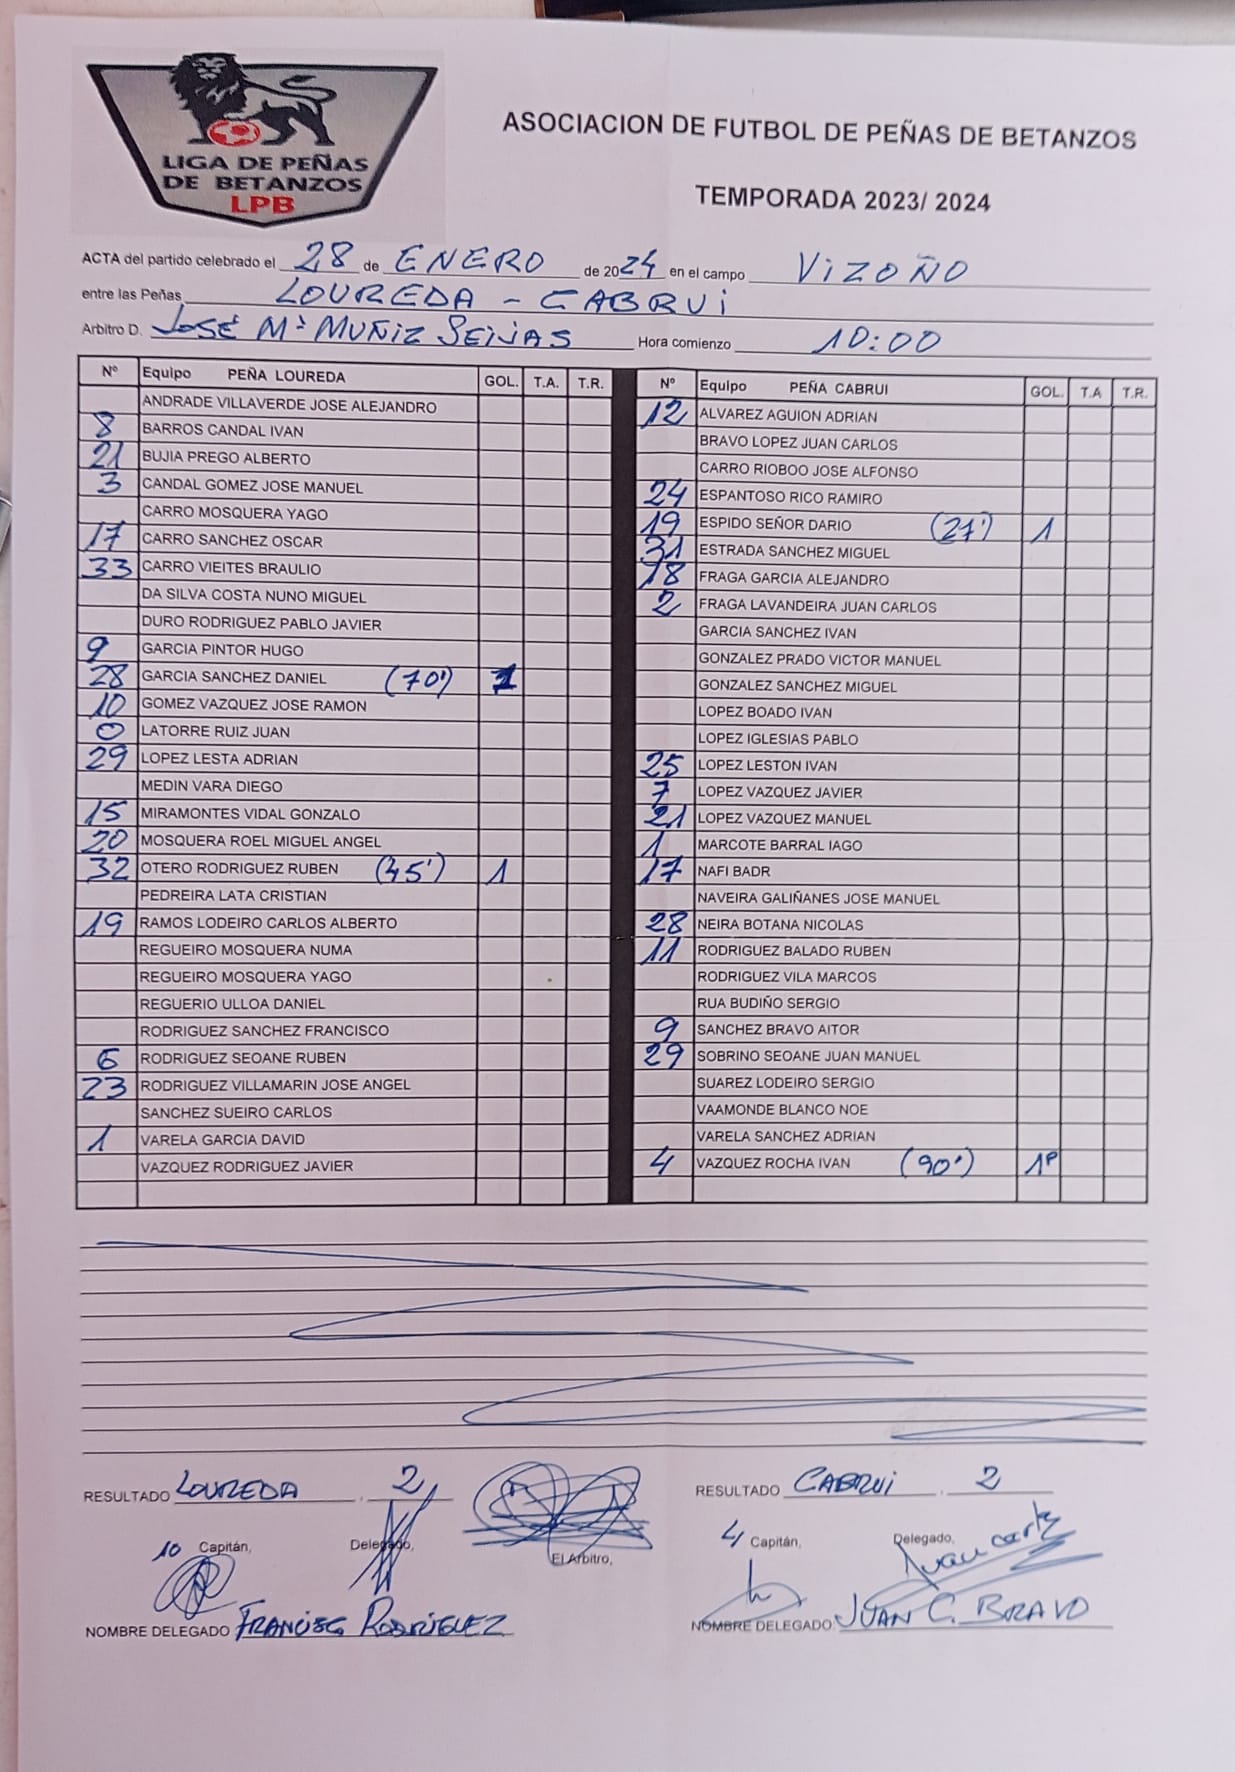 LIGA DE PEÑAS
DE BETANZOS
LPB
ASOCIACION DE FUTBOL DE PEÑAS DE BETANZOS
TEMPORADA 2023/ 2024
ACTA del partido celebrado el 28 de ENERO de 2024 en el campo VIZOÑO
entre las Peñas LOUREDA - CABRUI
Arbitro D. JOSÉ Mª MUÑIZ SEIJAS Hora comienzo 10:00
Nº Equipo PEÑA LOUREDA GOL. T.A. T.R.
ANDRADE VILLAVERDE JOSE ALEJANDRO
8 BARROS CANDAL IVAN
21 BUJIA PREGO ALBERTO
3 CANDAL GOMEZ JOSE MANUEL
CARRO MOSQUERA YAGO
17 CARRO SANCHEZ OSCAR
33 CARRO VIEITES BRAULIO
DA SILVA COSTA NUNO MIGUEL
DURO RODRIGUEZ PABLO JAVIER
9 GARCIA PINTOR HUGO
28 GARCIA SANCHEZ DANIEL (70') 1
10 GOMEZ VAZQUEZ JOSE RAMON
0 LATORRE RUIZ JUAN
29 LOPEZ LESTA ADRIAN
MEDIN VARA DIEGO
15 MIRAMONTES VIDAL GONZALO
20 MOSQUERA ROEL MIGUEL ANGEL
32 OTERO RODRIGUEZ RUBEN (45') 1
PEDREIRA LATA CRISTIAN
19 RAMOS LODEIRO CARLOS ALBERTO
REGUEIRO MOSQUERA NUMA
REGUEIRO MOSQUERA YAGO
REGUERIO ULLOA DANIEL
RODRIGUEZ SANCHEZ FRANCISCO
6 RODRIGUEZ SEOANE RUBEN
23 RODRIGUEZ VILLAMARIN JOSE ANGEL
SANCHEZ SUEIRO CARLOS
1 VARELA GARCIA DAVID
VAZQUEZ RODRIGUEZ JAVIER
Nº Equipo PEÑA CABRUI GOL. T.A T.R.
12 ALVAREZ AGUION ADRIAN
BRAVO LOPEZ JUAN CARLOS
CARRO RIOBOO JOSE ALFONSO
24 ESPANTOSO RICO RAMIRO
19 ESPIDO SEÑOR DARIO (27') 1
31 ESTRADA SANCHEZ MIGUEL
18 FRAGA GARCIA ALEJANDRO
2 FRAGA LAVANDEIRA JUAN CARLOS
GARCIA SANCHEZ IVAN
GONZALEZ PRADO VICTOR MANUEL
GONZALEZ SANCHEZ MIGUEL
LOPEZ BOADO IVAN
LOPEZ IGLESIAS PABLO
25 LOPEZ LESTON IVAN
7 LOPEZ VAZQUEZ JAVIER
21 LOPEZ VAZQUEZ MANUEL
1 MARCOTE BARRAL IAGO
17 NAFI BADR
NAVEIRA GALIÑANES JOSE MANUEL
28 NEIRA BOTANA NICOLAS
11 RODRIGUEZ BALADO RUBEN
RODRIGUEZ VILA MARCOS
RUA BUDIÑO SERGIO
9 SANCHEZ BRAVO AITOR
29 SOBRINO SEOANE JUAN MANUEL
SUAREZ LODEIRO SERGIO
VAAMONDE BLANCO NOE
VARELA SANCHEZ ADRIAN
4 VAZQUEZ ROCHA IVAN (90') 1P
RESULTADO LOUREDA . 2 RESULTADO CABRUI . 2
10 Capitán, Delegado, El Arbitro, 4 Capitán, Delegado,
Juan Carlos
NOMBRE DELEGADO FRANCISCO RODRÍGUEZ NOMBRE DELEGADO JUAN C. BRAVO